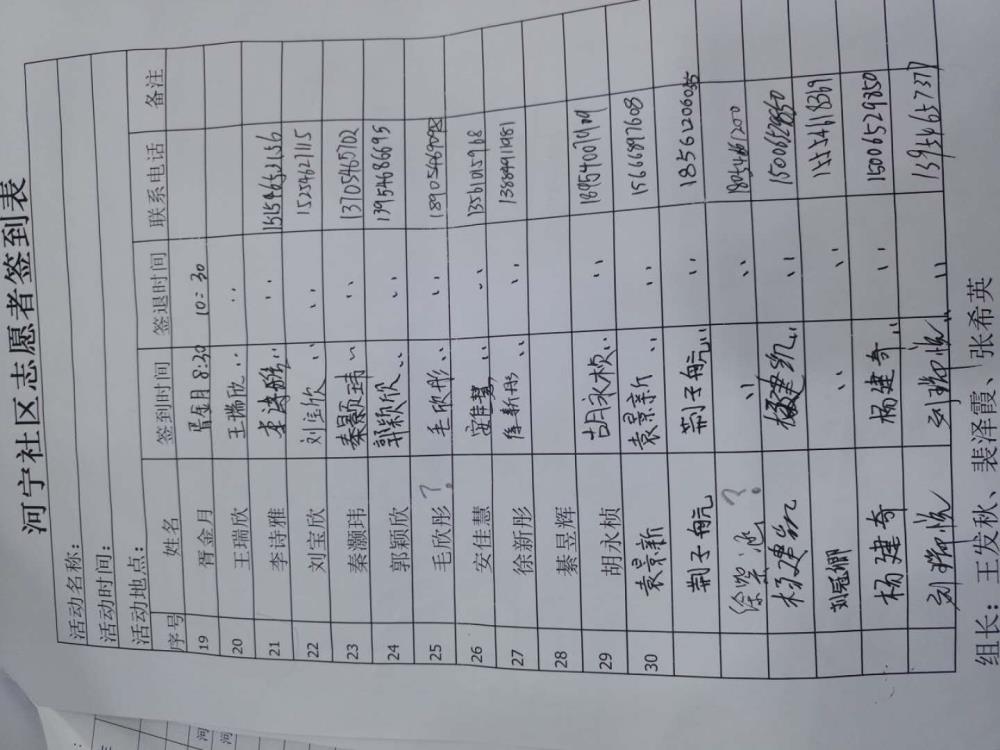 河宁社区志愿者签到表
活动名称：
活动时间：
活动地点：
序号 姓名 签到时间 签退时间 联系电话 备注
19 胥金月 胥金月 8:30 10:30
20 王瑞欣 王瑞欣 〃 〃
21 李诗雅 李诗雅 〃 〃 15154652156
22 刘宝欣 刘宝欣 〃 〃 15254627115
23 秦灏玮 秦灏玮 〃 〃 13705465702
24 郭颖欣 郭颖欣 〃 〃 13954686695
25 毛欣彤 ? 毛欣彤 〃 〃
26 安佳慧 安佳慧 〃 〃
27 徐新彤 徐新彤 〃 〃 13884911981
28 綦昱辉
29 胡永桢 胡永桢 〃 〃
30 袁景新 袁景新 〃 〃 15666897608
荆子航 荆子航 〃 〃 18561206085
徐 ? 〃 〃
杨建凯 杨建凯 〃 〃
刘冠娜 〃 〃 15554618369
杨建奇 杨建奇 〃 〃 15006529850
刘 刘 〃 〃 13954657377
组长：王发秋、裴泽霞、张希英
河
河